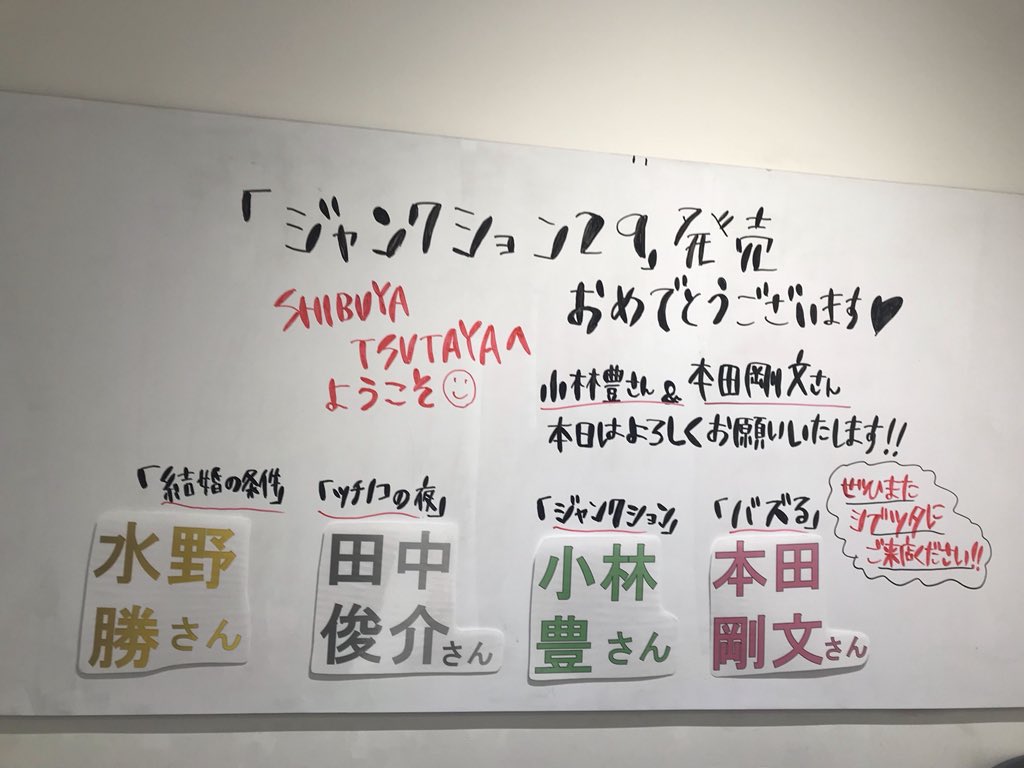 「ジャンクション29」発売
おめでとうございます♥
SHIBUYA
TSUTAYAへ
ようこそ☺
小林豊さん&本田剛文さん
本日はよろしくお願いいたします!!
「結婚の条件」
水野
勝さん
「ツチノコの夜」
田中
俊介さん
「ジャンクション」
小林
豊さん
「バズる」
本田
剛文さん
ぜひまた
シブツタに
ご来店ください!!